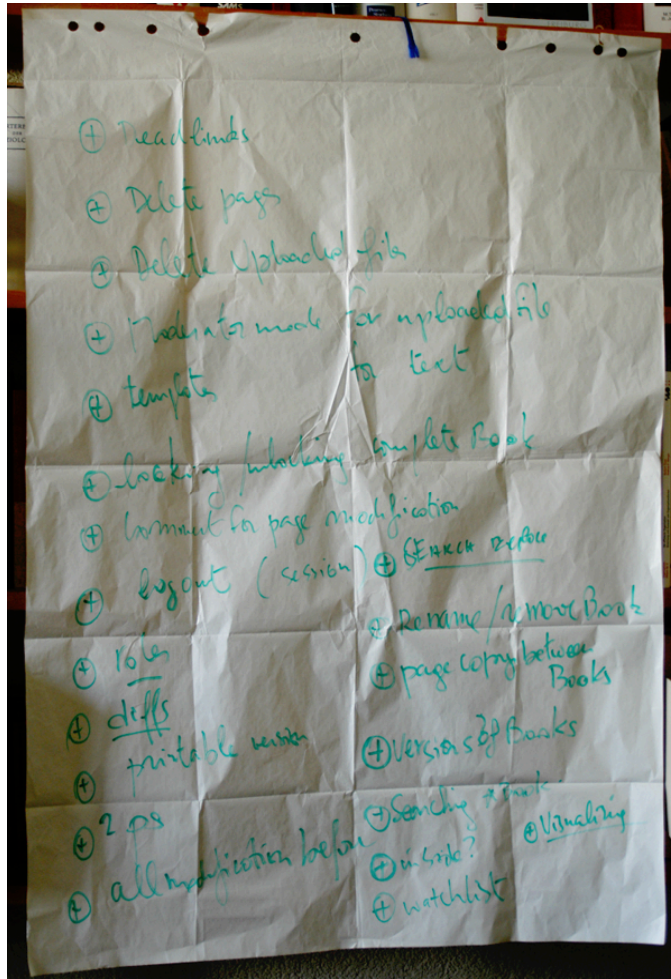 SAMS
⊕ Deadlinks
⊕ Delete page
⊕ Delete Uploaded files
⊕ Moderator mode for uploaded file
for text
⊕ templates
⊕ locking / unlocking complete Book
⊕ Comment for page modification
⊕ logout (session)
⊕ roles
⊕ diffs
⊕ printable version
⊕ 2 ps
⊕ all modification before
⊕ SEARCH
⊕ Rename/remove Book
⊕ page copy between
Books
⊕ Versions of Books
⊕ Searching
⊕ inside?
⊕ watchlist
⊕ Visualizing